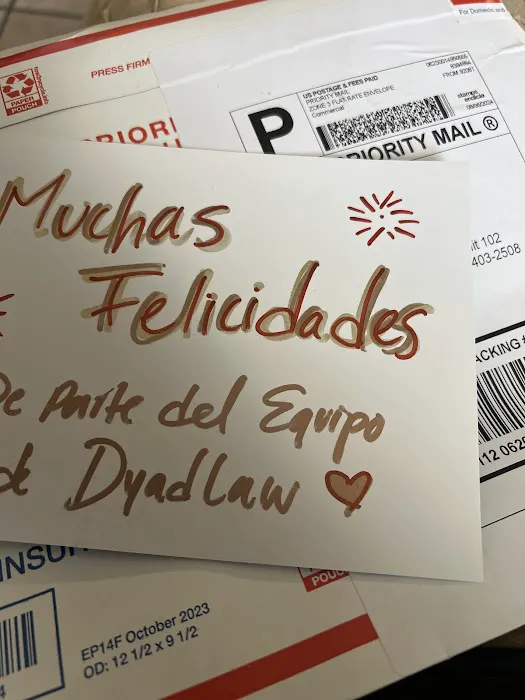 For Domestic
PRESS FIRM
PAPER
POUCH
US POSTAGE & FEES PAID
PRIORITY MAIL
ZONE 3 FLAT-RATE ENVELOPE
Commercial
FROM 92081
stamps
endicia
P
PRIORITY MAIL ®
Muchas
Felicidades
De parte del Equipo
de Dyadlaw
102
403-2508
ACKING #
INSU
POUC
EP14F October 2023
OD: 12 1/2 x 9 1/2